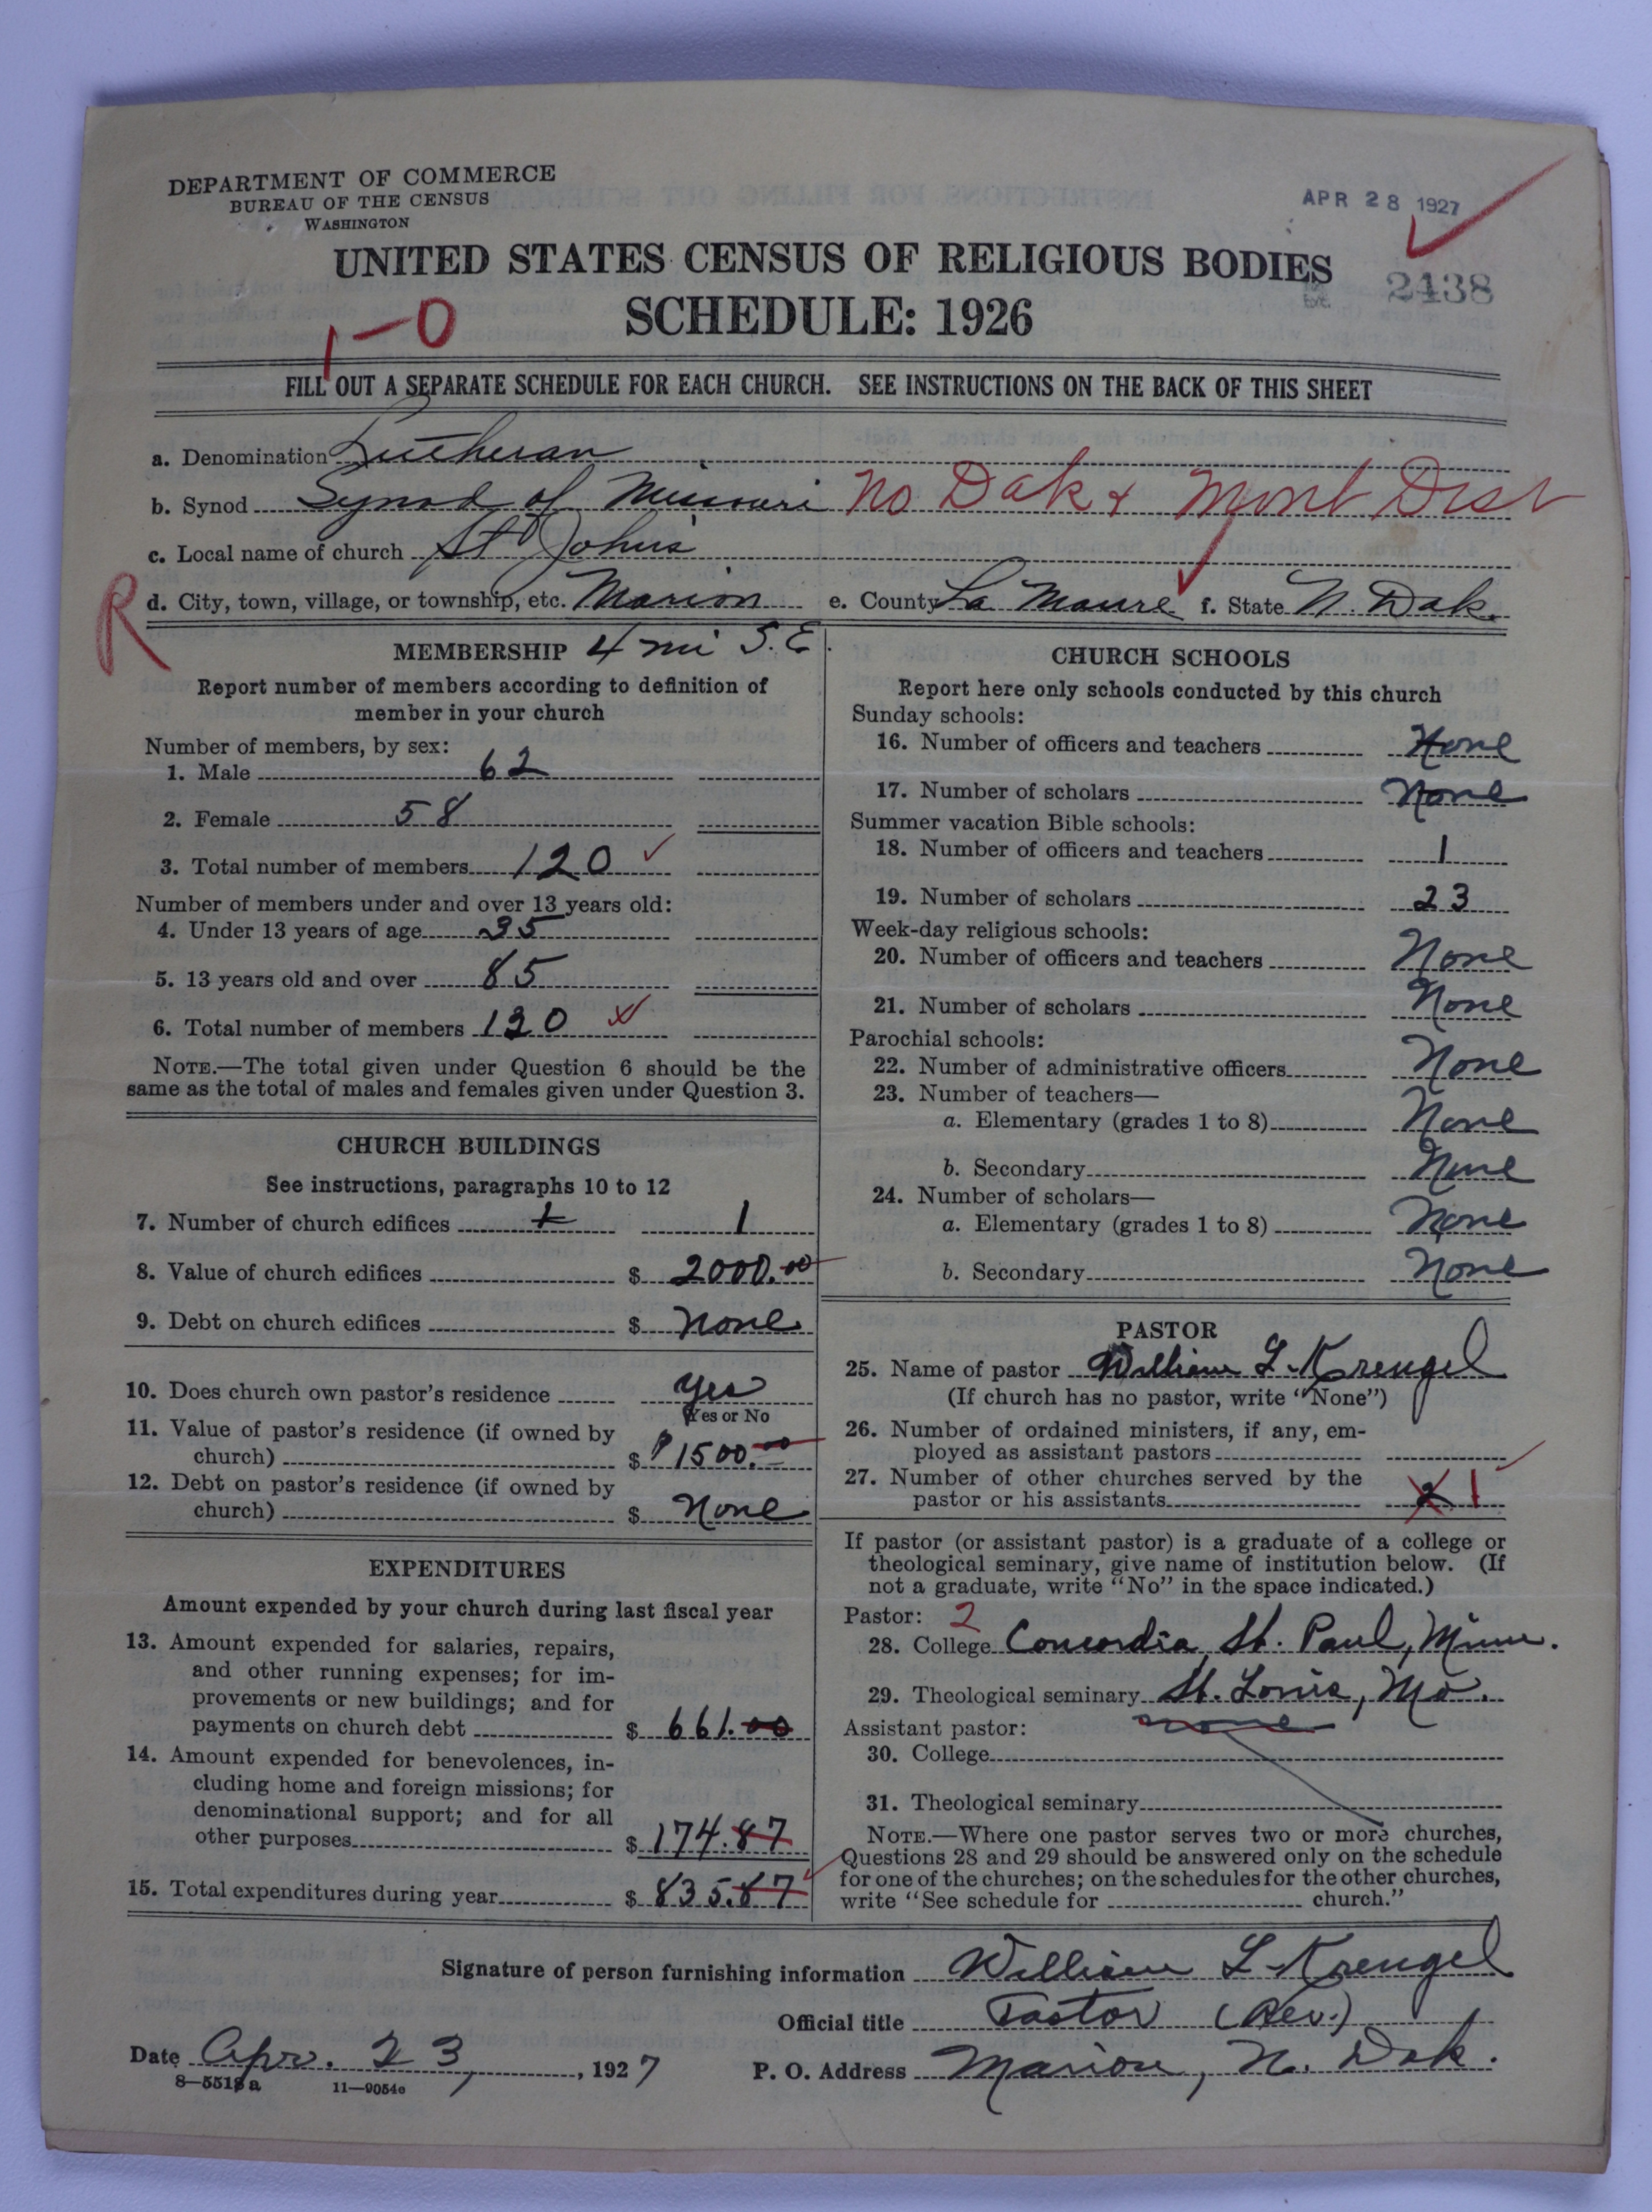 DEPARTMENT OF COMMERCE
BUREAU OF THE CENSUS
WASHINGTON
APR 28 1927
UNITED STATES CENSUS OF RELIGIOUS BODIES
2438
SCHEDULE: 1926
1-0
FILL OUT A SEPARATE SCHEDULE FOR EACH CHURCH. SEE INSTRUCTIONS ON THE BACK OF THIS SHEET
a. Denomination Lutheran
b. Synod Synod of Missouri No Dak & Mont Dist
c. Local name of church St Johns
R
d. City, town, village, or township, etc. Marion e. County La Moure f. State N. Dak.
MEMBERSHIP 4 mi S.E.
Report number of members according to definition of
member in your church
Number of members, by sex:
1. Male 62
2. Female 58
3. Total number of members 120
Number of members under and over 13 years old:
4. Under 13 years of age 35
5. 13 years old and over 85
6. Total number of members 120
NOTE.—The total given under Question 6 should be the
same as the total of males and females given under Question 3.
CHURCH BUILDINGS
See instructions, paragraphs 10 to 12
7. Number of church edifices 1 1
8. Value of church edifices $ 2000.00
9. Debt on church edifices $ None
10. Does church own pastor's residence Yes
Yes or No
11. Value of pastor's residence (if owned by
church) $ 1500.00
12. Debt on pastor's residence (if owned by
church) $ None
EXPENDITURES
Amount expended by your church during last fiscal year
13. Amount expended for salaries, repairs,
and other running expenses; for im-
provements or new buildings; and for
payments on church debt $ 661.00
14. Amount expended for benevolences, in-
cluding home and foreign missions; for
denominational support; and for all
other purposes $ 174.87
15. Total expenditures during year $ 835.87
CHURCH SCHOOLS
Report here only schools conducted by this church
Sunday schools:
16. Number of officers and teachers None
17. Number of scholars None
Summer vacation Bible schools:
18. Number of officers and teachers 1
19. Number of scholars 23
Week-day religious schools:
20. Number of officers and teachers None
21. Number of scholars None
Parochial schools:
22. Number of administrative officers None
23. Number of teachers—
a. Elementary (grades 1 to 8) None
b. Secondary None
24. Number of scholars—
a. Elementary (grades 1 to 8) None
b. Secondary None
PASTOR
25. Name of pastor William L. Krengel
(If church has no pastor, write "None")
26. Number of ordained ministers, if any, em-
ployed as assistant pastors
27. Number of other churches served by the
pastor or his assistants 2 1
If pastor (or assistant pastor) is a graduate of a college or
theological seminary, give name of institution below. (If
not a graduate, write "No" in the space indicated.)
Pastor: 2
28. College Concordia, St. Paul, Minn.
29. Theological seminary St. Louis, Mo.
Assistant pastor: none
30. College
31. Theological seminary
NOTE.—Where one pastor serves two or more churches,
Questions 28 and 29 should be answered only on the schedule
for one of the churches; on the schedules for the other churches,
write "See schedule for church."
Signature of person furnishing information William L. Krengel
Official title Pastor (Rev.)
Date Apr. 23, 1927 P. O. Address Marion, N. Dak.
8—5518a 11—9054e